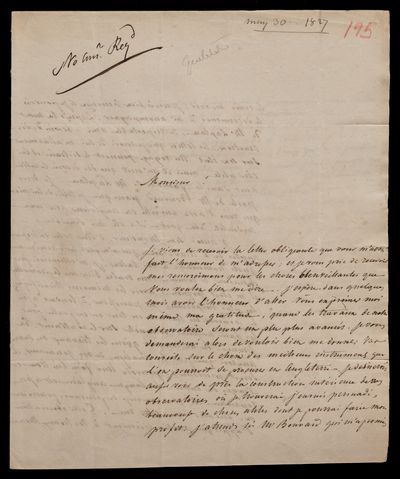 may 30 1827
195
No Ansr. Reqd
Monsieur
Je viens de recevoir la lettre obligeante que vous m'avez
fait l'honneur de m'adresser; et je vous prie de recevoir
mes remerciemens pour les choses bienveillantes que
vous voulez bien me dire. J'espère dans quelques
mois avoir l'honneur d'aller vous exprimer moi
même ma gratitude, quand les travaux de notre
observatoire seront un peu plus avancés. Je vous
demanderai alors de vouloir bien me donner vos
conseils sur le choix des meilleurs instrumens que
l'on pourrait se procurer en Angleterre. Je désirerais
aussi voir de près la construction intérieure de vos
observatoires où je trouverai j'en suis persuadé,
beaucoup de choses utiles dont je pourrai faire mon
profit. J'attends ici Mr Bouvard qui m'a promis